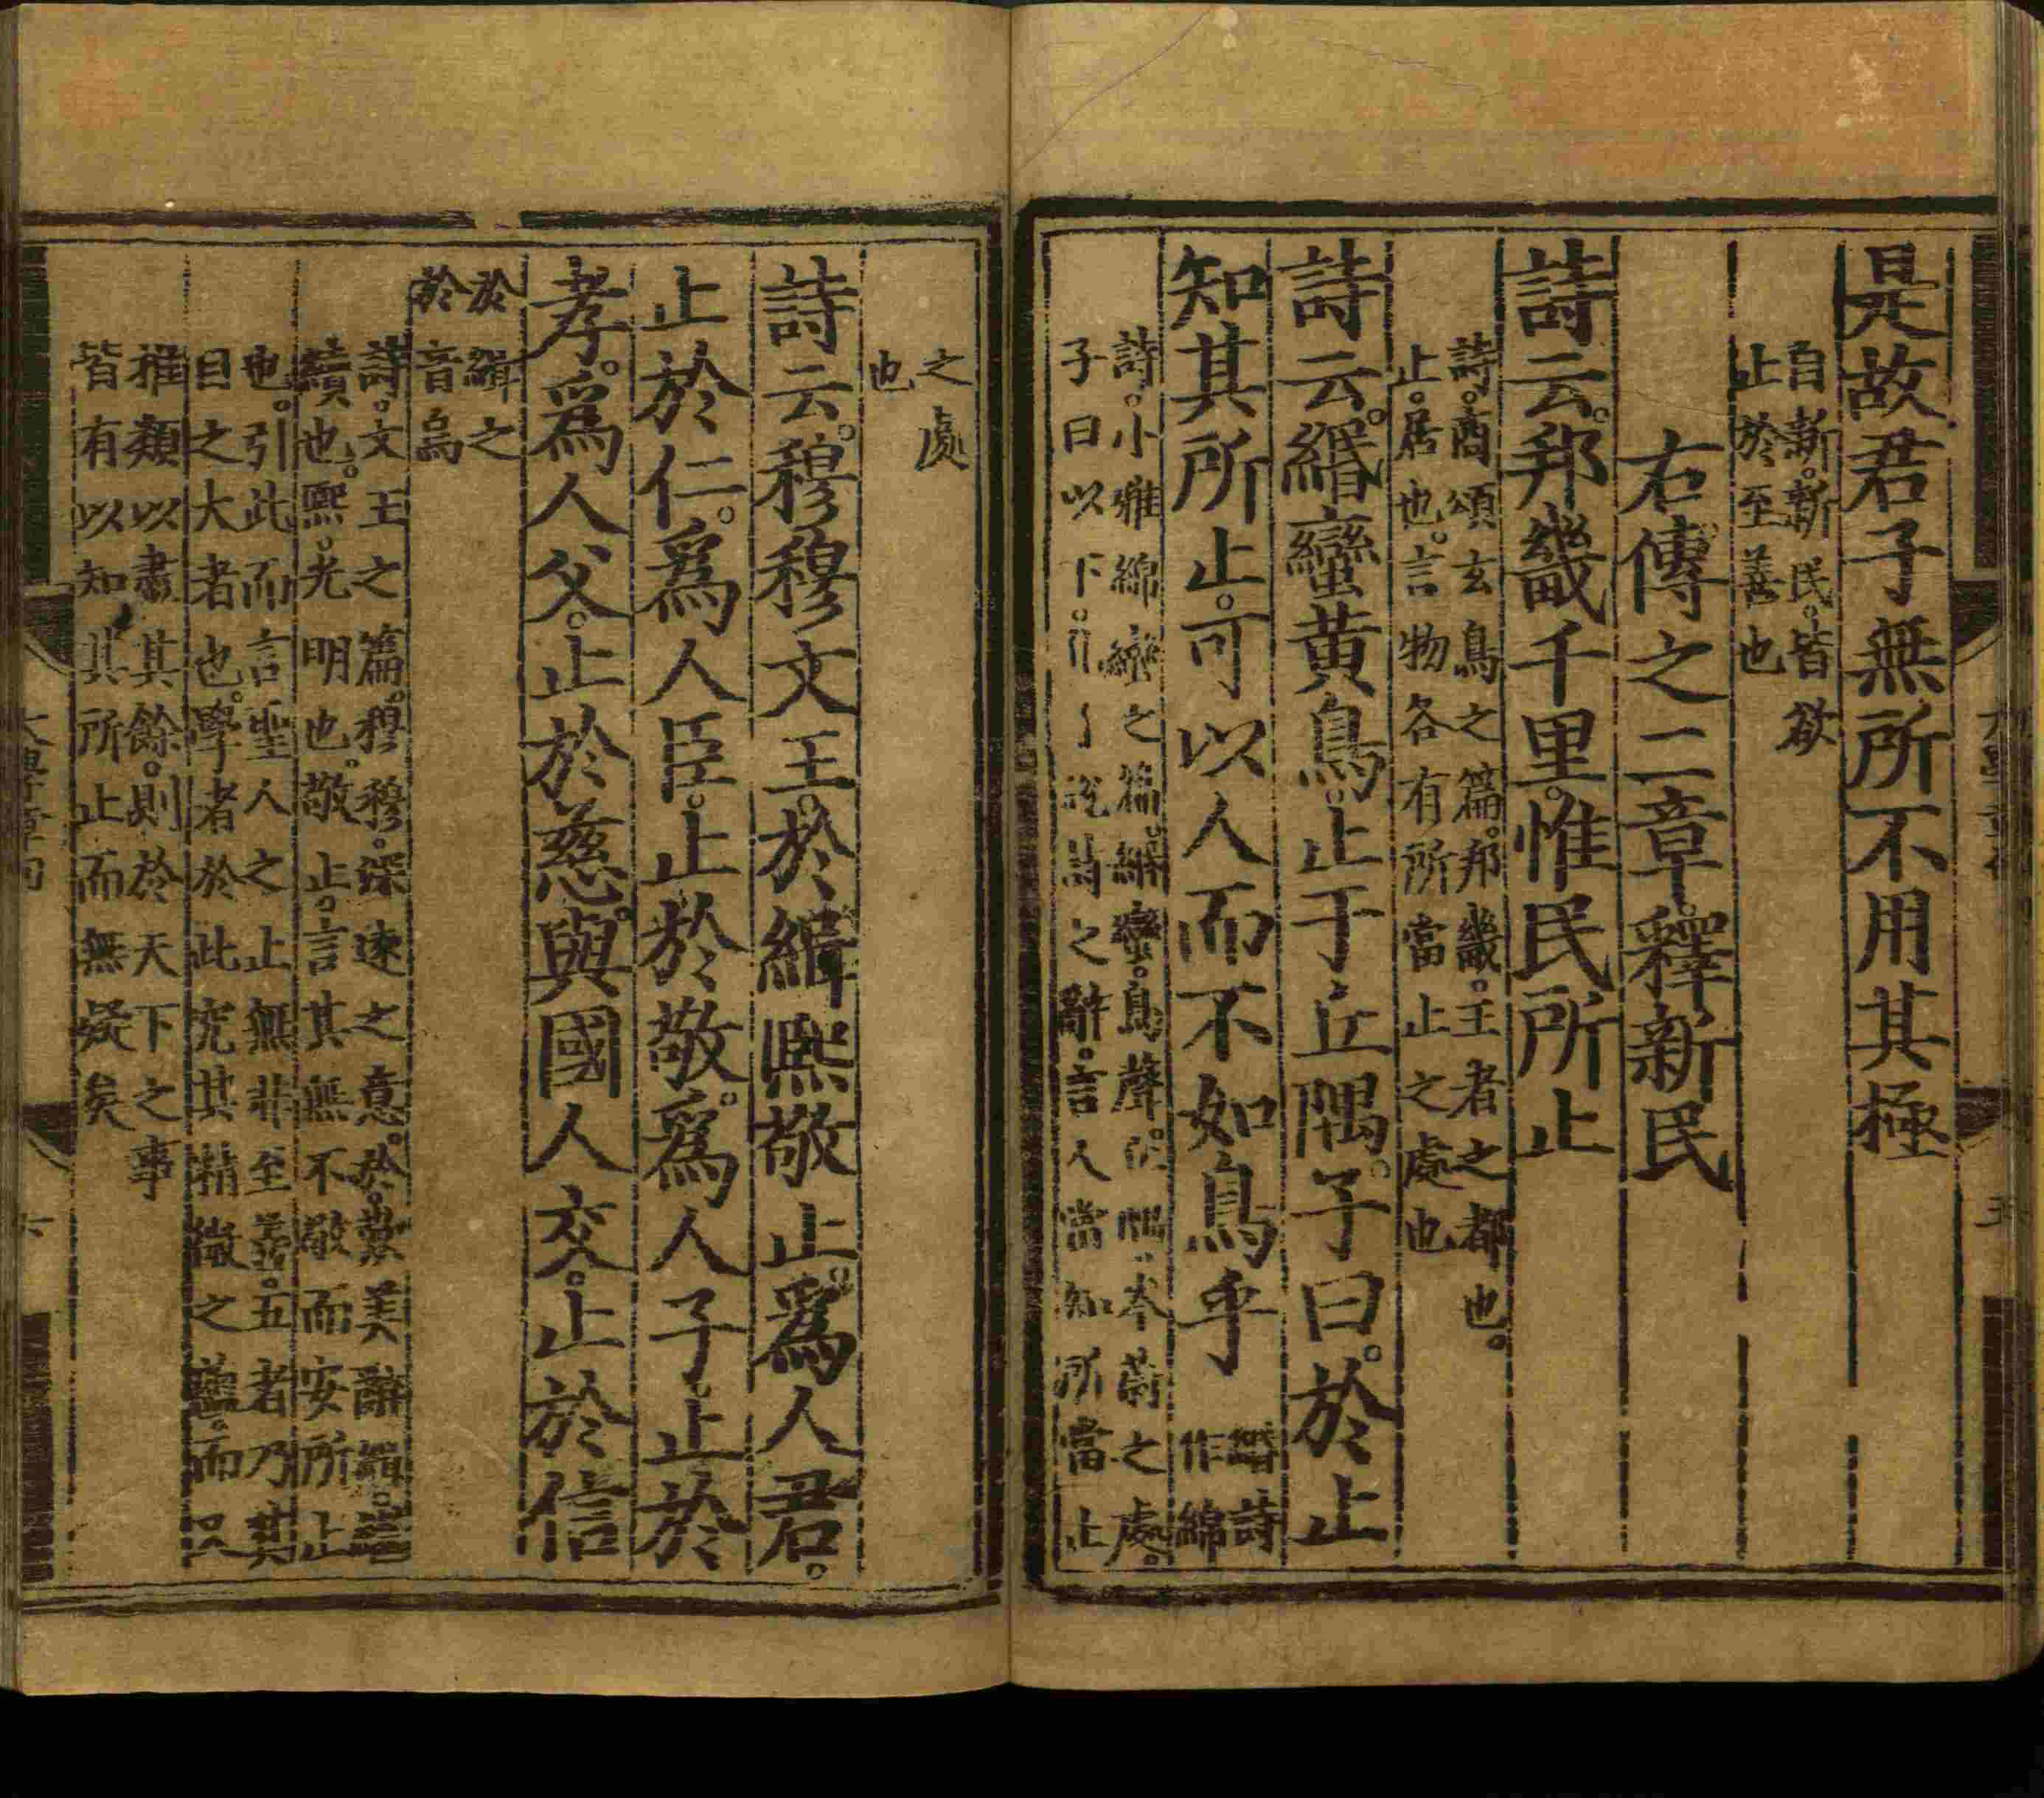 是故君子無所不用其極
自新。新民。皆欲
止於至善也
右傳之二章。釋新民
詩云。邦畿千里。惟民所止
詩。商頌玄鳥之篇。邦畿。王者之都也。
止。居也。言物各有所當止之處也
詩云。緡蠻黃鳥。止于丘隅。子曰。於止
知其所止。可以人而不如鳥乎
緡詩
作綿
詩。小雅綿蠻之篇。緡蠻。鳥聲。丘隅。岑蔚之處。
子曰以下。說詩之辭。言人當知所當止
之處
也
詩云。穆穆文王。於緝熙敬止。爲人君。
止於仁。爲人臣。止於敬。爲人子。止於
孝。爲人父。止於慈。與國人交。止於信
於緝之
於音烏
詩。文王之篇。穆穆。深遠之意。於。歎美辭。緝。繼
續也。熙。光明也。敬止。言其無不敬而安所止
也。引此而言聖人之止無非至善。五者乃其
目之大者也。學者於此究其精微之蘊。而又
推類以盡其餘。則於天下之事
皆有以知其所止而無疑矣